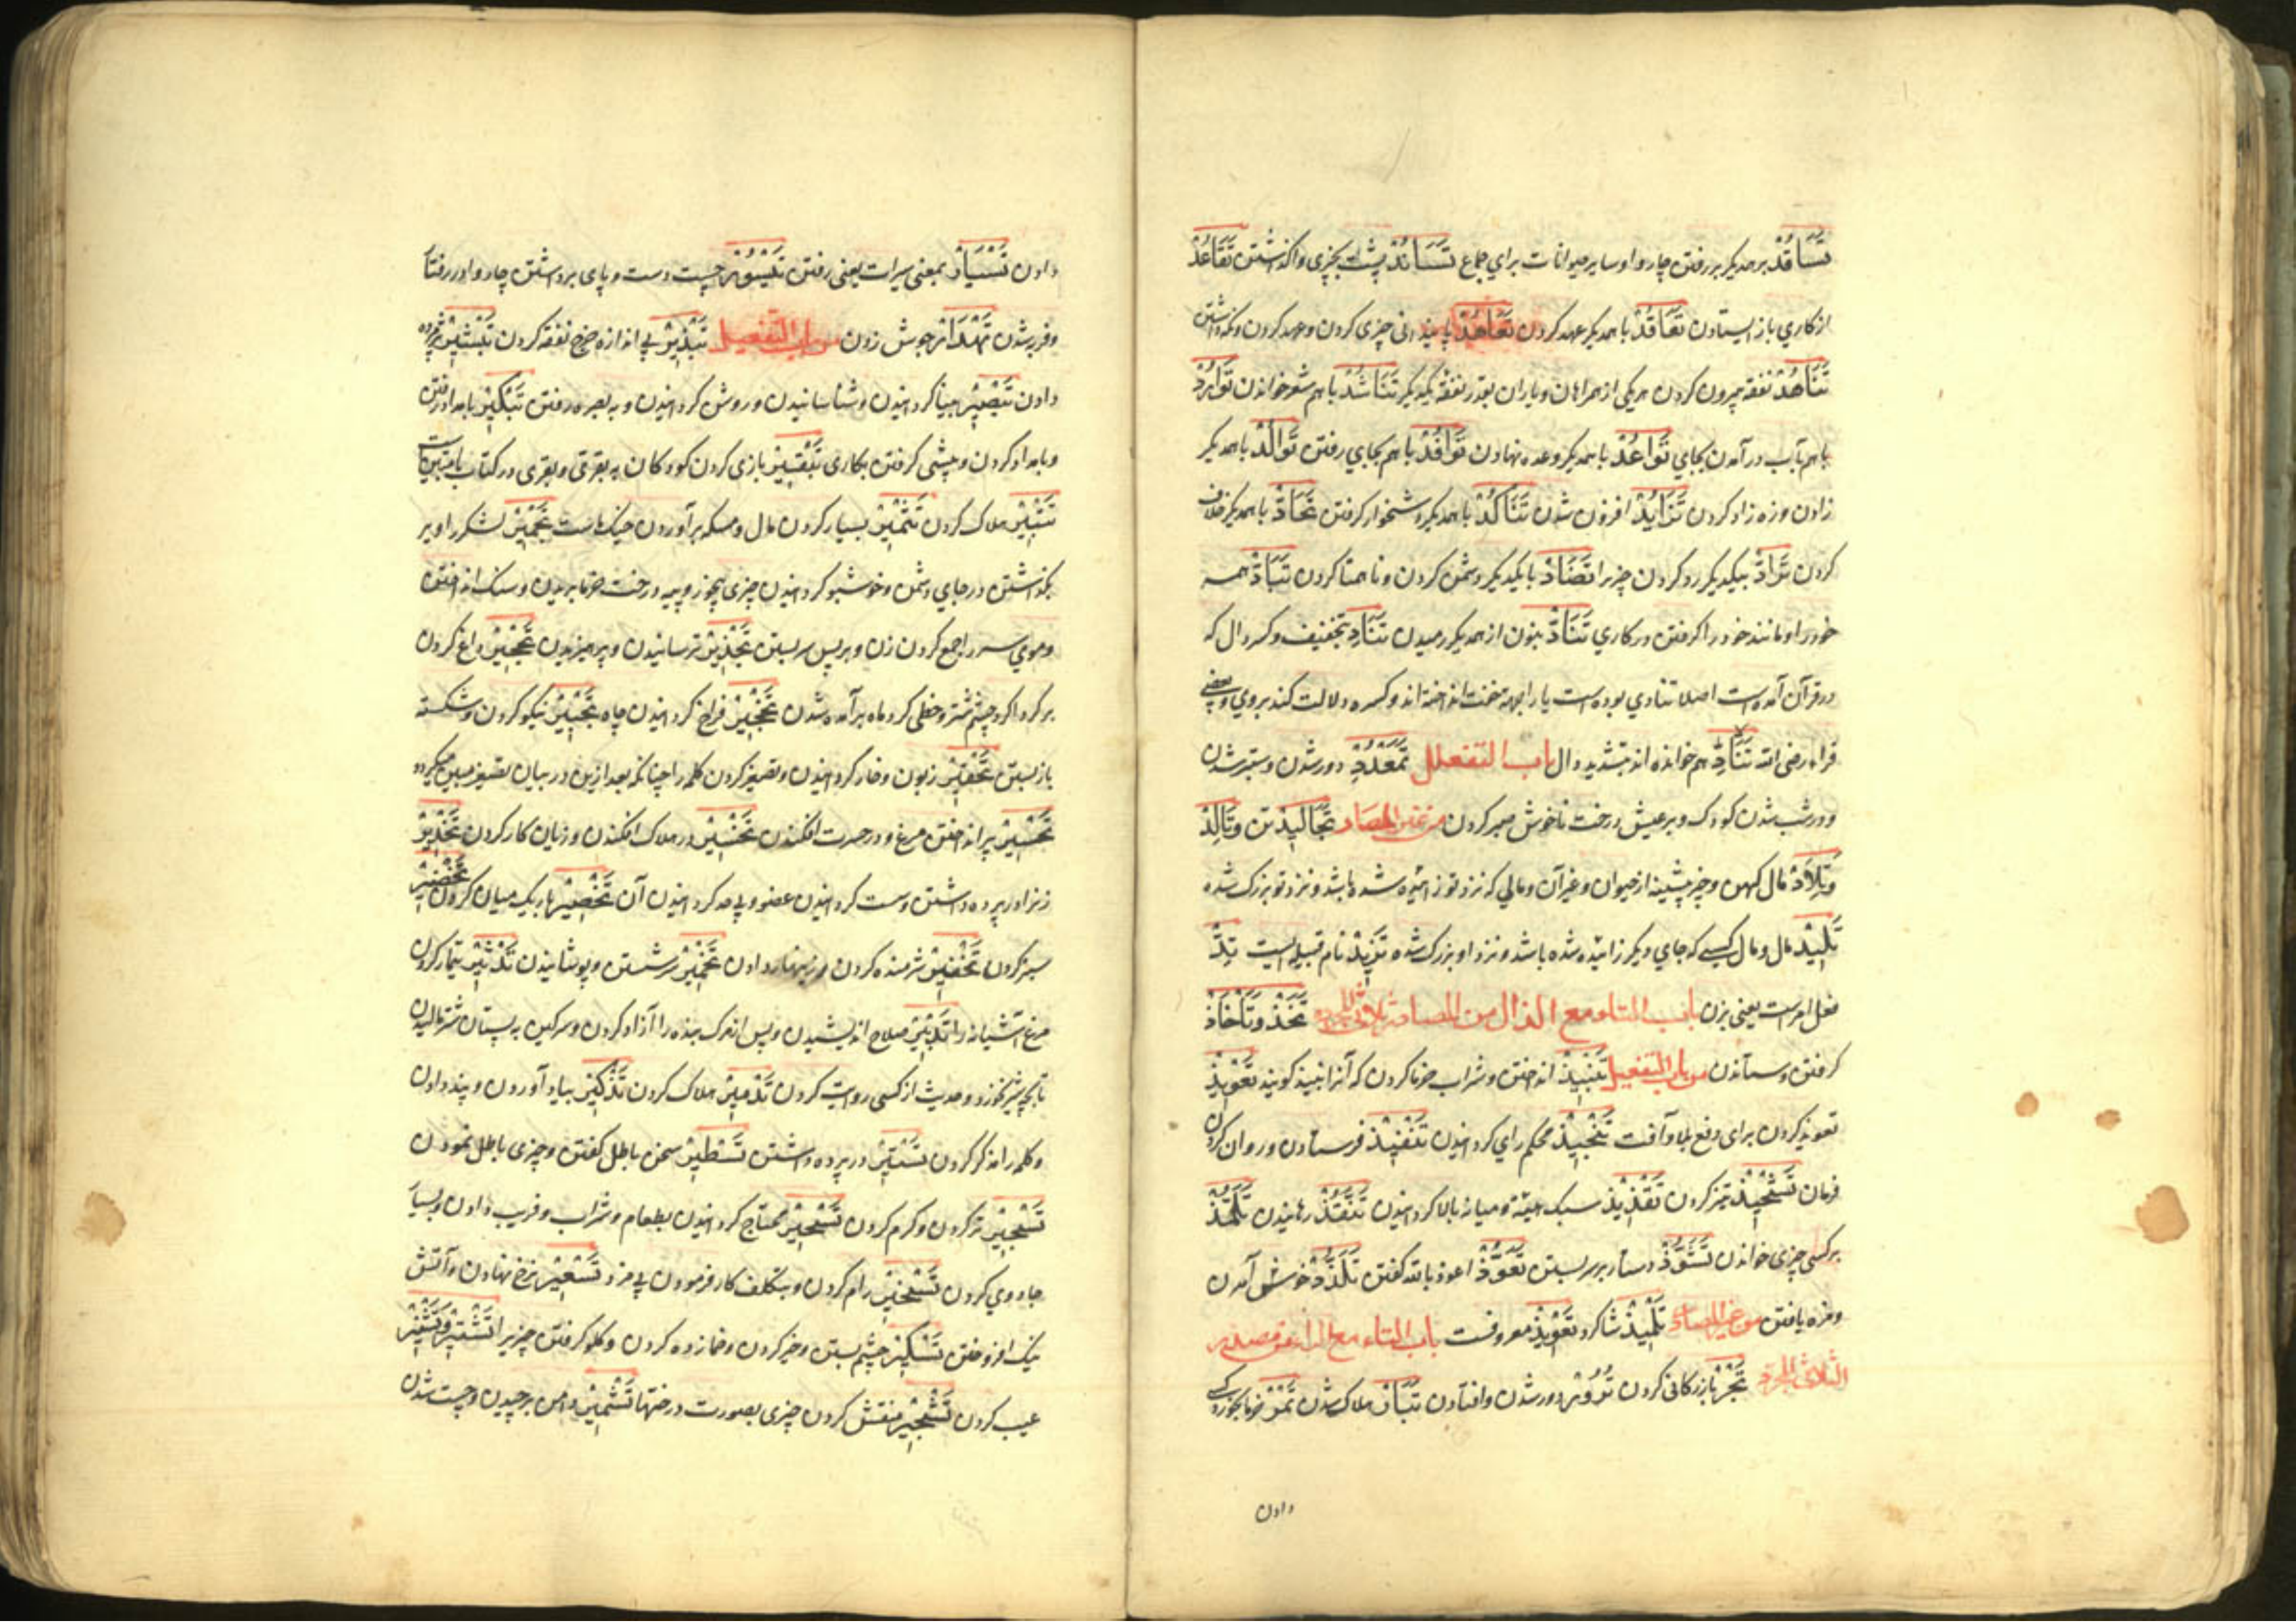 تَسَافُدْ برهمدیکر بر رفتن چاروا و سایر حیوانات برای جماع تَسَانُدْ پشت بچیزی واکذاشتن تَقَاعُدْ
از کاری باز ایستادن تَعَاقُدْ با همدیکر عهد کردن تَعَاهُدْ چیزی کردن و عهد کردن و نکه داشتن
تَنَاهُدْ نفقه بیرون کردن هر یکی از همراهان و یاران بقدر نفقه یکدیکر تَنَاشُدْ با هم شعر خواندن تَوَارُدْ
با هم بآب در آمدن بجای تَوَاعُدْ با همدیکر وعده نهادن تَوَافُدْ با هم بجای رفتن تَوَالُدْ با همدیکر
زادن و زه زاد کردن تَزَایُدْ افزون شدن تَنَاکُدْ با همدیکر دشخوار کرفتن تَحَادّ با همدیکر خلاف
کردن تَرَادّ بیکدیکر رد کردن چیزیرا تَضَادّ با یکدیکر دشمنی کردن و ناهمتا کردن تَبَادّ همسر
خود را و مانند خود را کرفتن در کاری تَنَادّ بنون از همدیکر رمیدن تَنَادِ بتخفیف و کسر دال که
در قرآن آمده است اصلا تنادی بوده است یا را بجهة خفت انداخته اند و کسره دلالت کند بر وی و بعضی
قراء رضی الله تَنَادِّ هم خوانده اند بتشدید دال باب التفعلل تَمَعْدُدْ دور شدن و ستبر شدن
و درشت شدن کودک و بر عیش درخت ناخوش صبر کردن من غیر المصادر تَجَالِیدْ تن و تَالِدْ
وَتِلَادْ مال کهن و چیز پیشینه از حیوان و غیر آن و مالی که نزد تو زائیده شده باشد و نزد تو بزرک شده
تَلِیدْ مال و مال کسی که جای دیکر زائیده شده باشد و نزد او بزرک شده تَزِیدْ نام قبیله ایست تِدْ
فعل امر است یعنی بزن باب التاء مع الذال من المصادر ثلاثی المجرد تَخَذْ وَتَأْخَاذْ
کرفتن و ستاندن من باب التفعیل تَنْبِیذْ انداختن و شراب خرما کردن که آنرا نبیذ کویند تَعْوِیذْ
تعویذ کردن برای دفع بلا و آفت تَنْجِیذْ محکم رای کردانیدن تَنْفِیذْ فرستادن و روان کردن
فرمان تَشْحِیذْ تیز کردن تَقْذِیذْ سبک هیئة و میانه بالا کردانیدن تَنَقُّذْ رهانیدن تَلَمُّذْ
بر کسی چیزی خواندن تَشَوُّذْ دستار بر سر بستن تَعَوُّذْ اعوذ بالله کفتن تَلَذُّذْ خوش آمدن
و مزه یافتن من غیر المصادر تِلْمِیذْ شاکرد تَعْوِیذْ معروفست باب التاء مع الراء من مصدر
الثلاثی المجرد تَجْرْ بازرکانی کردن تُرُورْ دور شدن و افتادن تَبَارْ هلاک شدن تَمْرْ خرما بخورد کسی
دادن
دادن تَسْیَارْ بمعنی سیر است یعنی رفتن چست دست و پای برداشتن چاروا در رفتار
و فربه شدن تَهْدَارْ جوش زدن من باب التفعیل تَبْذِیرْ بی اندازه خرج نفقه کردن تَبْشِیرْ مژده
دادن تَبْصِیرْ بینا کردانیدن و شناسانیدن و روشن کردانیدن و به بصره رفتن تَبْکِیرْ بامداد رفتن
و بامداد کردن و پیشی کرفتن بکاری تَبْقِیرْ بازی کردن کودکان به بقیری و بقیری در کتاب با
تَتْبِیرْ هلاک کردن تَثْمِیرْ بسیار کردن مال و مسکه بر آوردن تَجْمِیرْ لشکر را دیر
بکذاشتن در جای دشمن و خوشبو کردانیدن چیزی ببخور و پیه درخت خرما بریدن و سنک انداختن
و موی سر را جمع کردن زن و بر پس سر بستن تَحْذِیرْ ترسانیدن و پرهیزیدن تَحْجِیرْ داغ کردن
بر کرداکرد چشم شتر و خطی کرد ماه بر آمده شدن فراخ کردانیدن چاه تَحْبِیرْ نیکو کردن و شکسته
باز بستن تَحْقِیرْ زبون و خار کردانیدن و تصغیر کردن کلمه را چنانکه بعد ازین در بیان تصغیر میکردد
تَحْسِیرْ پر انداختن مرغ و در حسرت افکندن تَخْسِیرْ در هلاک افکندن و زیان کار کردن تَخْدِیرْ
زنرا در پرده داشتن و سست کردانیدن عضو و بی مد کردانیدن آن تَخْصِیرْ باریک میان کردن تَخْضِیرْ
سبز کردن تَخْفِیرْ شرمنده کردن و زینهار دادن تَخْمِیرْ سرشتن و پوشانیدن تَدْثِیرْ تیمار کردن
مرغ آشیانه را تَدْبِیرْ صلاح اندیشیدن و پس از مرک بنده را آزاد کردن و سرکین به پستان شتر مالیدن
تا بچه شیر نخورد و حدیث از کسی روایت کردن تَدْمِیرْ هلاک کردن تَذْکِیرْ بیاد آوردن و پند دادن
و کلمه را مذکر کردن تَسْتِیرْ در پرده داشتن تَسْطِیرْ سخن باطل کفتن و چیزی باطل نمودن
تَسْجِیرْ پر کردن و کرم کردن تَسْحِیرْ محتاج کردانیدن بطعام و شراب و فریب دادن و بسیار
جادوی کردن تَسْخِیرْ رام کردن و بتکلف کار فرمودن بی مزد تَسْعِیرْ نرخ نهادن و آتش
نیک افروختن تَسْکِیرْ چشم بستن و خیره کردن و خمار زده کردن و کلو کرفتن چیزیرا تَشْتِیرْ وَتَشْنِیرْ
عیب کردن تَشْجِیرْ منقش کردن چیزی بصورت درختها تَشْمِیرْ دامن برچیدن و چست شدن